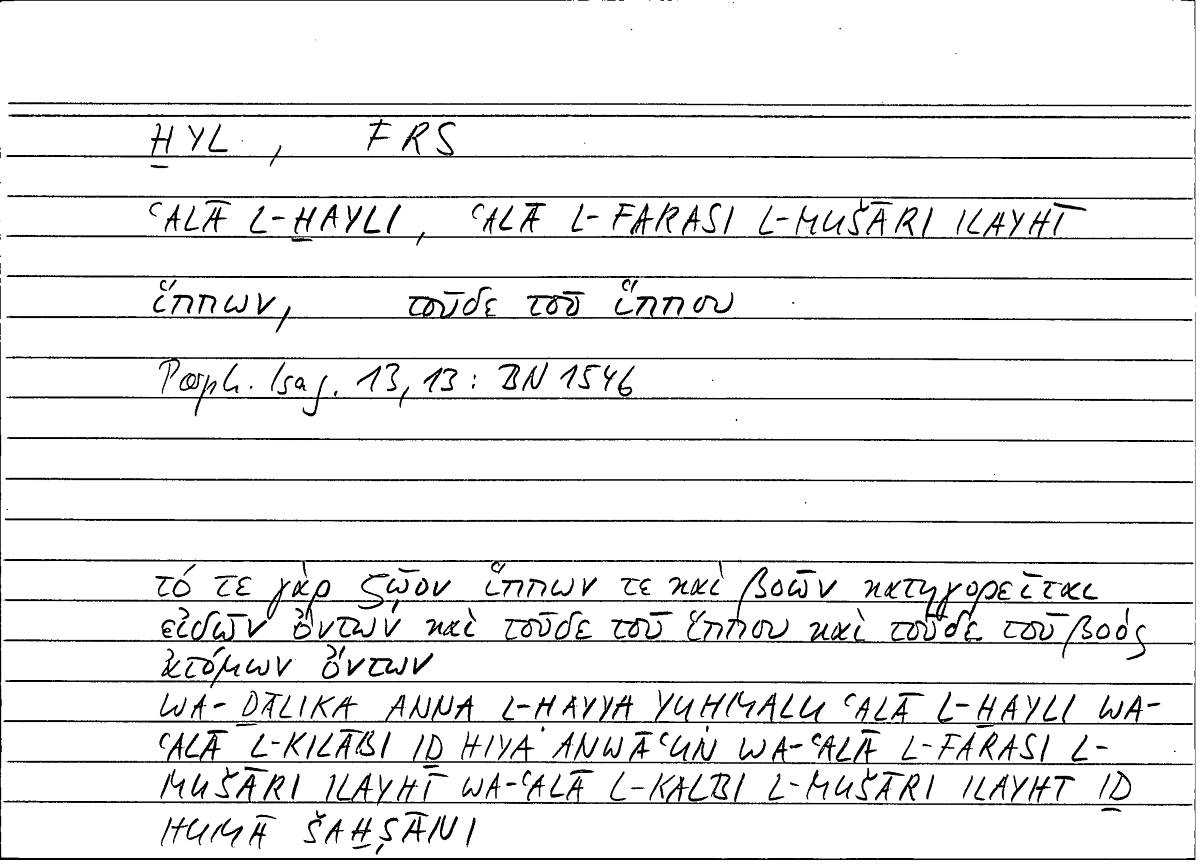 H̱YL , FRS
ʿALĀ L-H̱AYLI, ʿALĀ L-FARASI L-MUŠĀRI ILAYHĪ
ἵππων, τοῦδε τοῦ ἵππου
Porph. Isag. 13, 13 : BN 1546
τό τε γὰρ ζῷον ἵππων τε καὶ βοῶν κατηγορεῖται
εἰδῶν ὄντων καὶ τοῦδε τοῦ ἵππου καὶ τοῦδε τοῦ βοός
ἀτόμων ὄντων
WA-ḎĀLIKA ANNA L-HAYYA YUHMALU ʿALĀ L-H̱AYLI WA-
ʿALĀ L-KILĀBI IḎ HIYA ANWĀʿUN WA-ʿALĀ L-FARASI L-
MUŠĀRI ILAYHĪ WA-ʿALĀ L-KALBI L-MUŠĀRI ILAYHI IḎ
HUMĀ ŠAH̱ṢĀNI